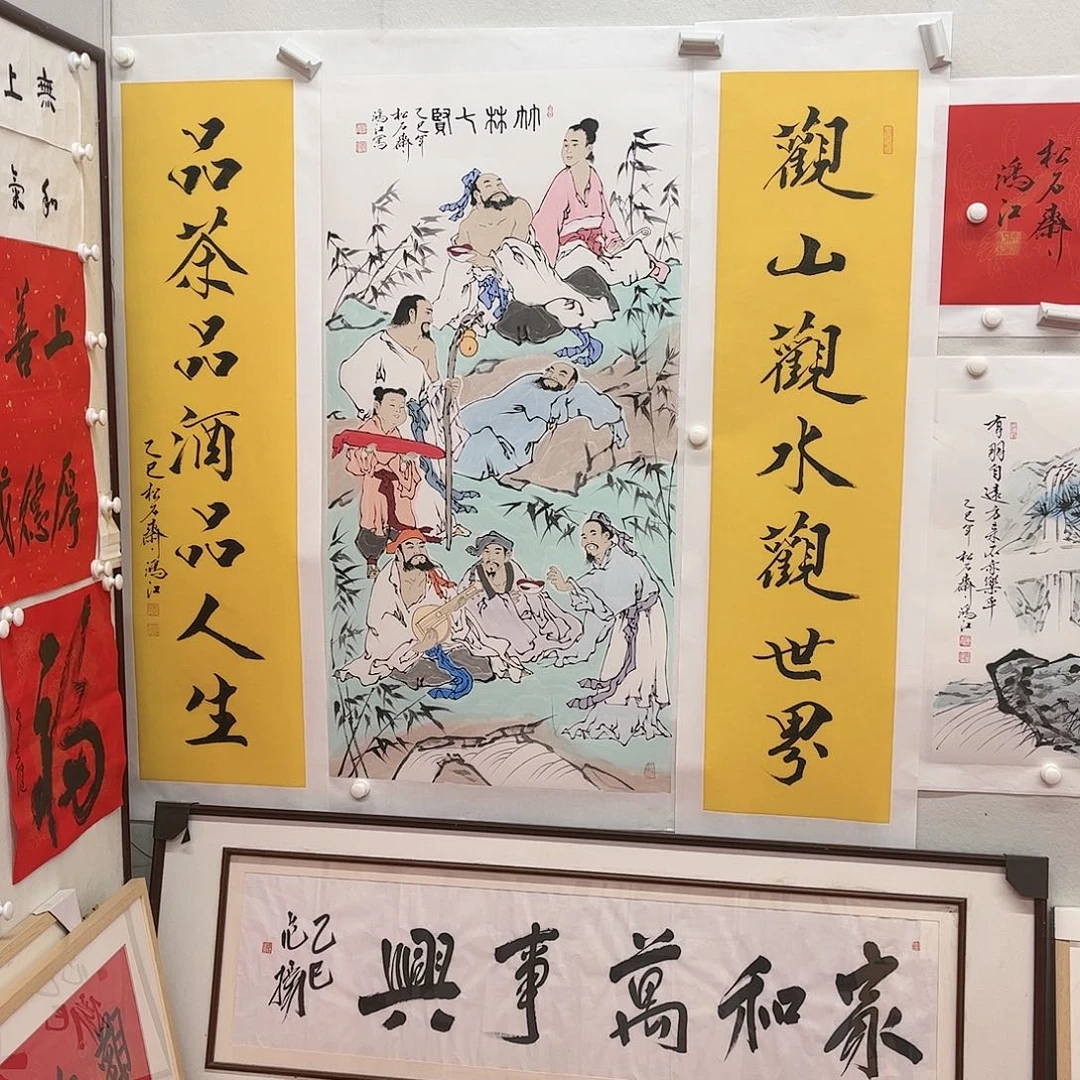 觀山觀水觀世界
竹林七賢
乙巳年
松石齋
鴻江寫
品茶品酒品人生
乙巳松石齋鴻江
松石齋
鴻江
有朋自遠方来不亦樂乎
乙巳年松石齋鴻江
無上
和氣
上善
厚德
福
家和萬事興
乙巳